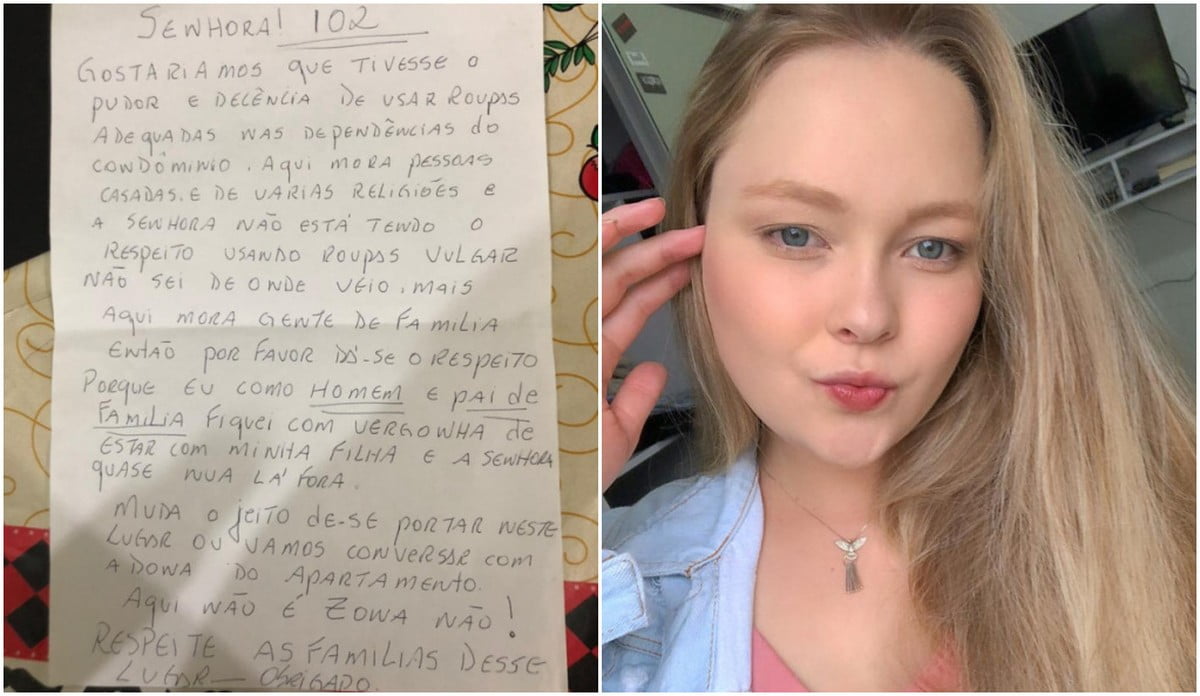 SENHORA! 102
GOSTARIAMOS QUE TIVESSE O
PUDOR E DECÊNCIA DE USAR ROUPAS
ADEQUADAS NAS DEPENDÊNCIAS do
CONDÔMINIO. AQUI MORA PESSOAS
CASADAS. E DE VARIAS RELIGIÕES E
A SENHORA NÃO ESTÁ TENDO O
RESPEITO USANDO ROUPAS VULGAR
NÃO SEI DE ONDE VÉIO. MAIS
AQUI MORA GENTE DE FAMILIA
ENTÃO POR FAVOR DÁ-SE O RESPEITO
PORQUE EU COMO HOMEM E PAI de
FAMILIA FIQUEI COM VERGONHA de
ESTAR COM MINHA FILHA E A SENHORA
QUASE NUA LÁ FORA.
MUDA O JEITO DE-SE PORTAR NESTE
LUGAR OU VAMOS CONVERSAR COM
A DONA DO APARTAMENTO.
AQUI NÃO É ZONA NÃO!
RESPEITE AS FAMILIAS DESSE
LUGAR — OBRIGADO.